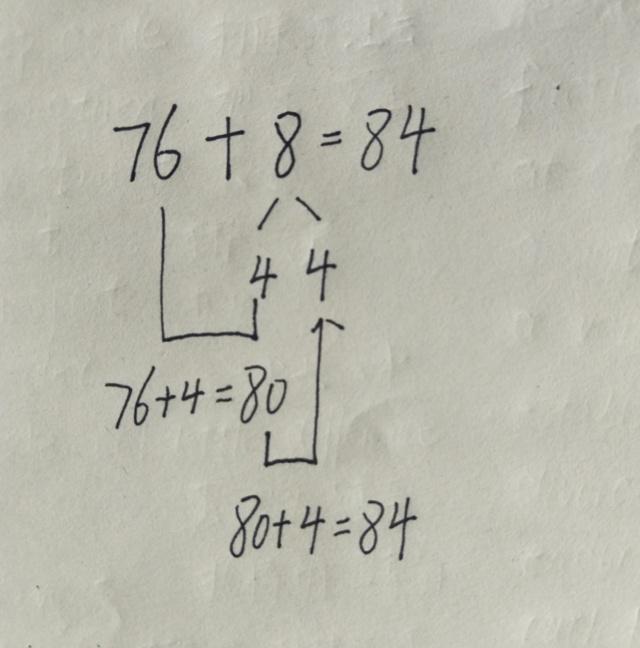 76+8=84
4 4
76+4=80
80+4=84